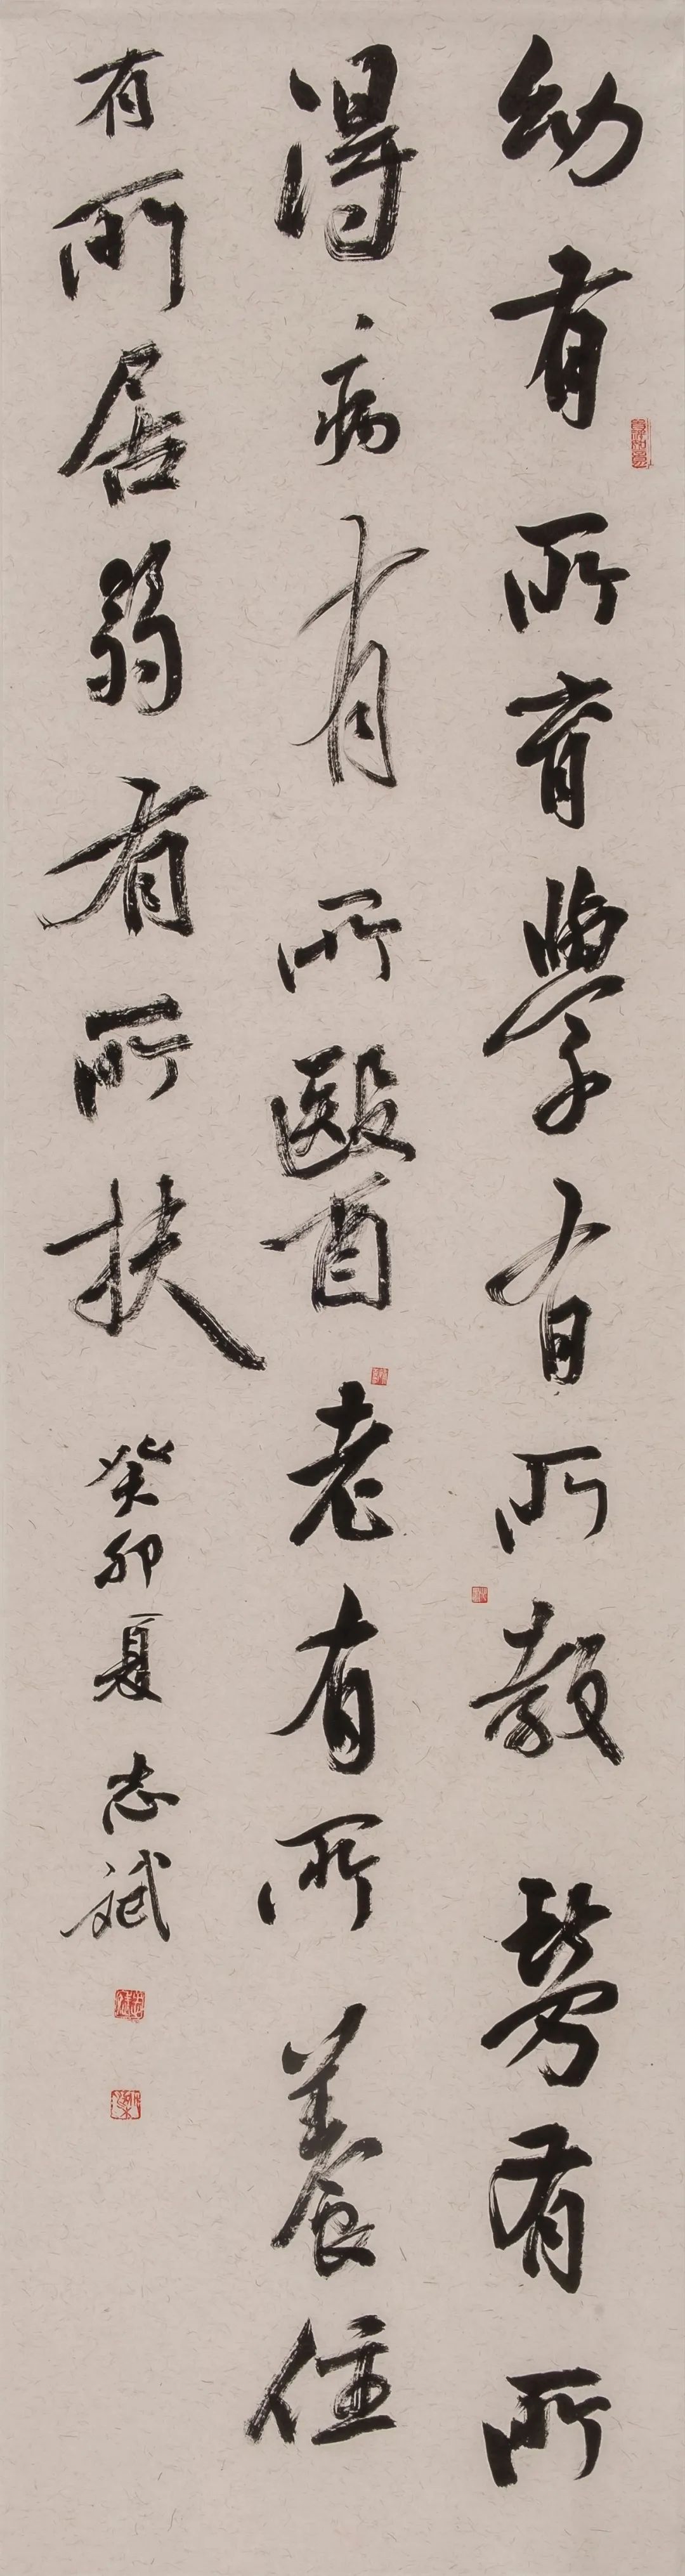 幼有所育學有所教勞有所
得病有所醫老有所養住
有所居弱有所扶 癸卯夏 志斌